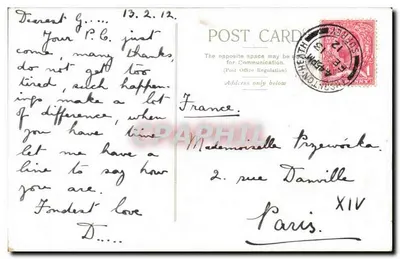 13.2.12
Dearest G.....
Your P.C. just
come, many thanks,
do not get too
tired, such happen-
ings make a lot
of difference, when
you have time
let me have a
line to say how
you are.
Fondest love
D.....
POST CARD
The opposite space may be used
for Communication.
(Post Office Regulation)
Address only below
France.
Mademoiselle Przewóska
2. rue Danville
XIV
Paris.
SURREY